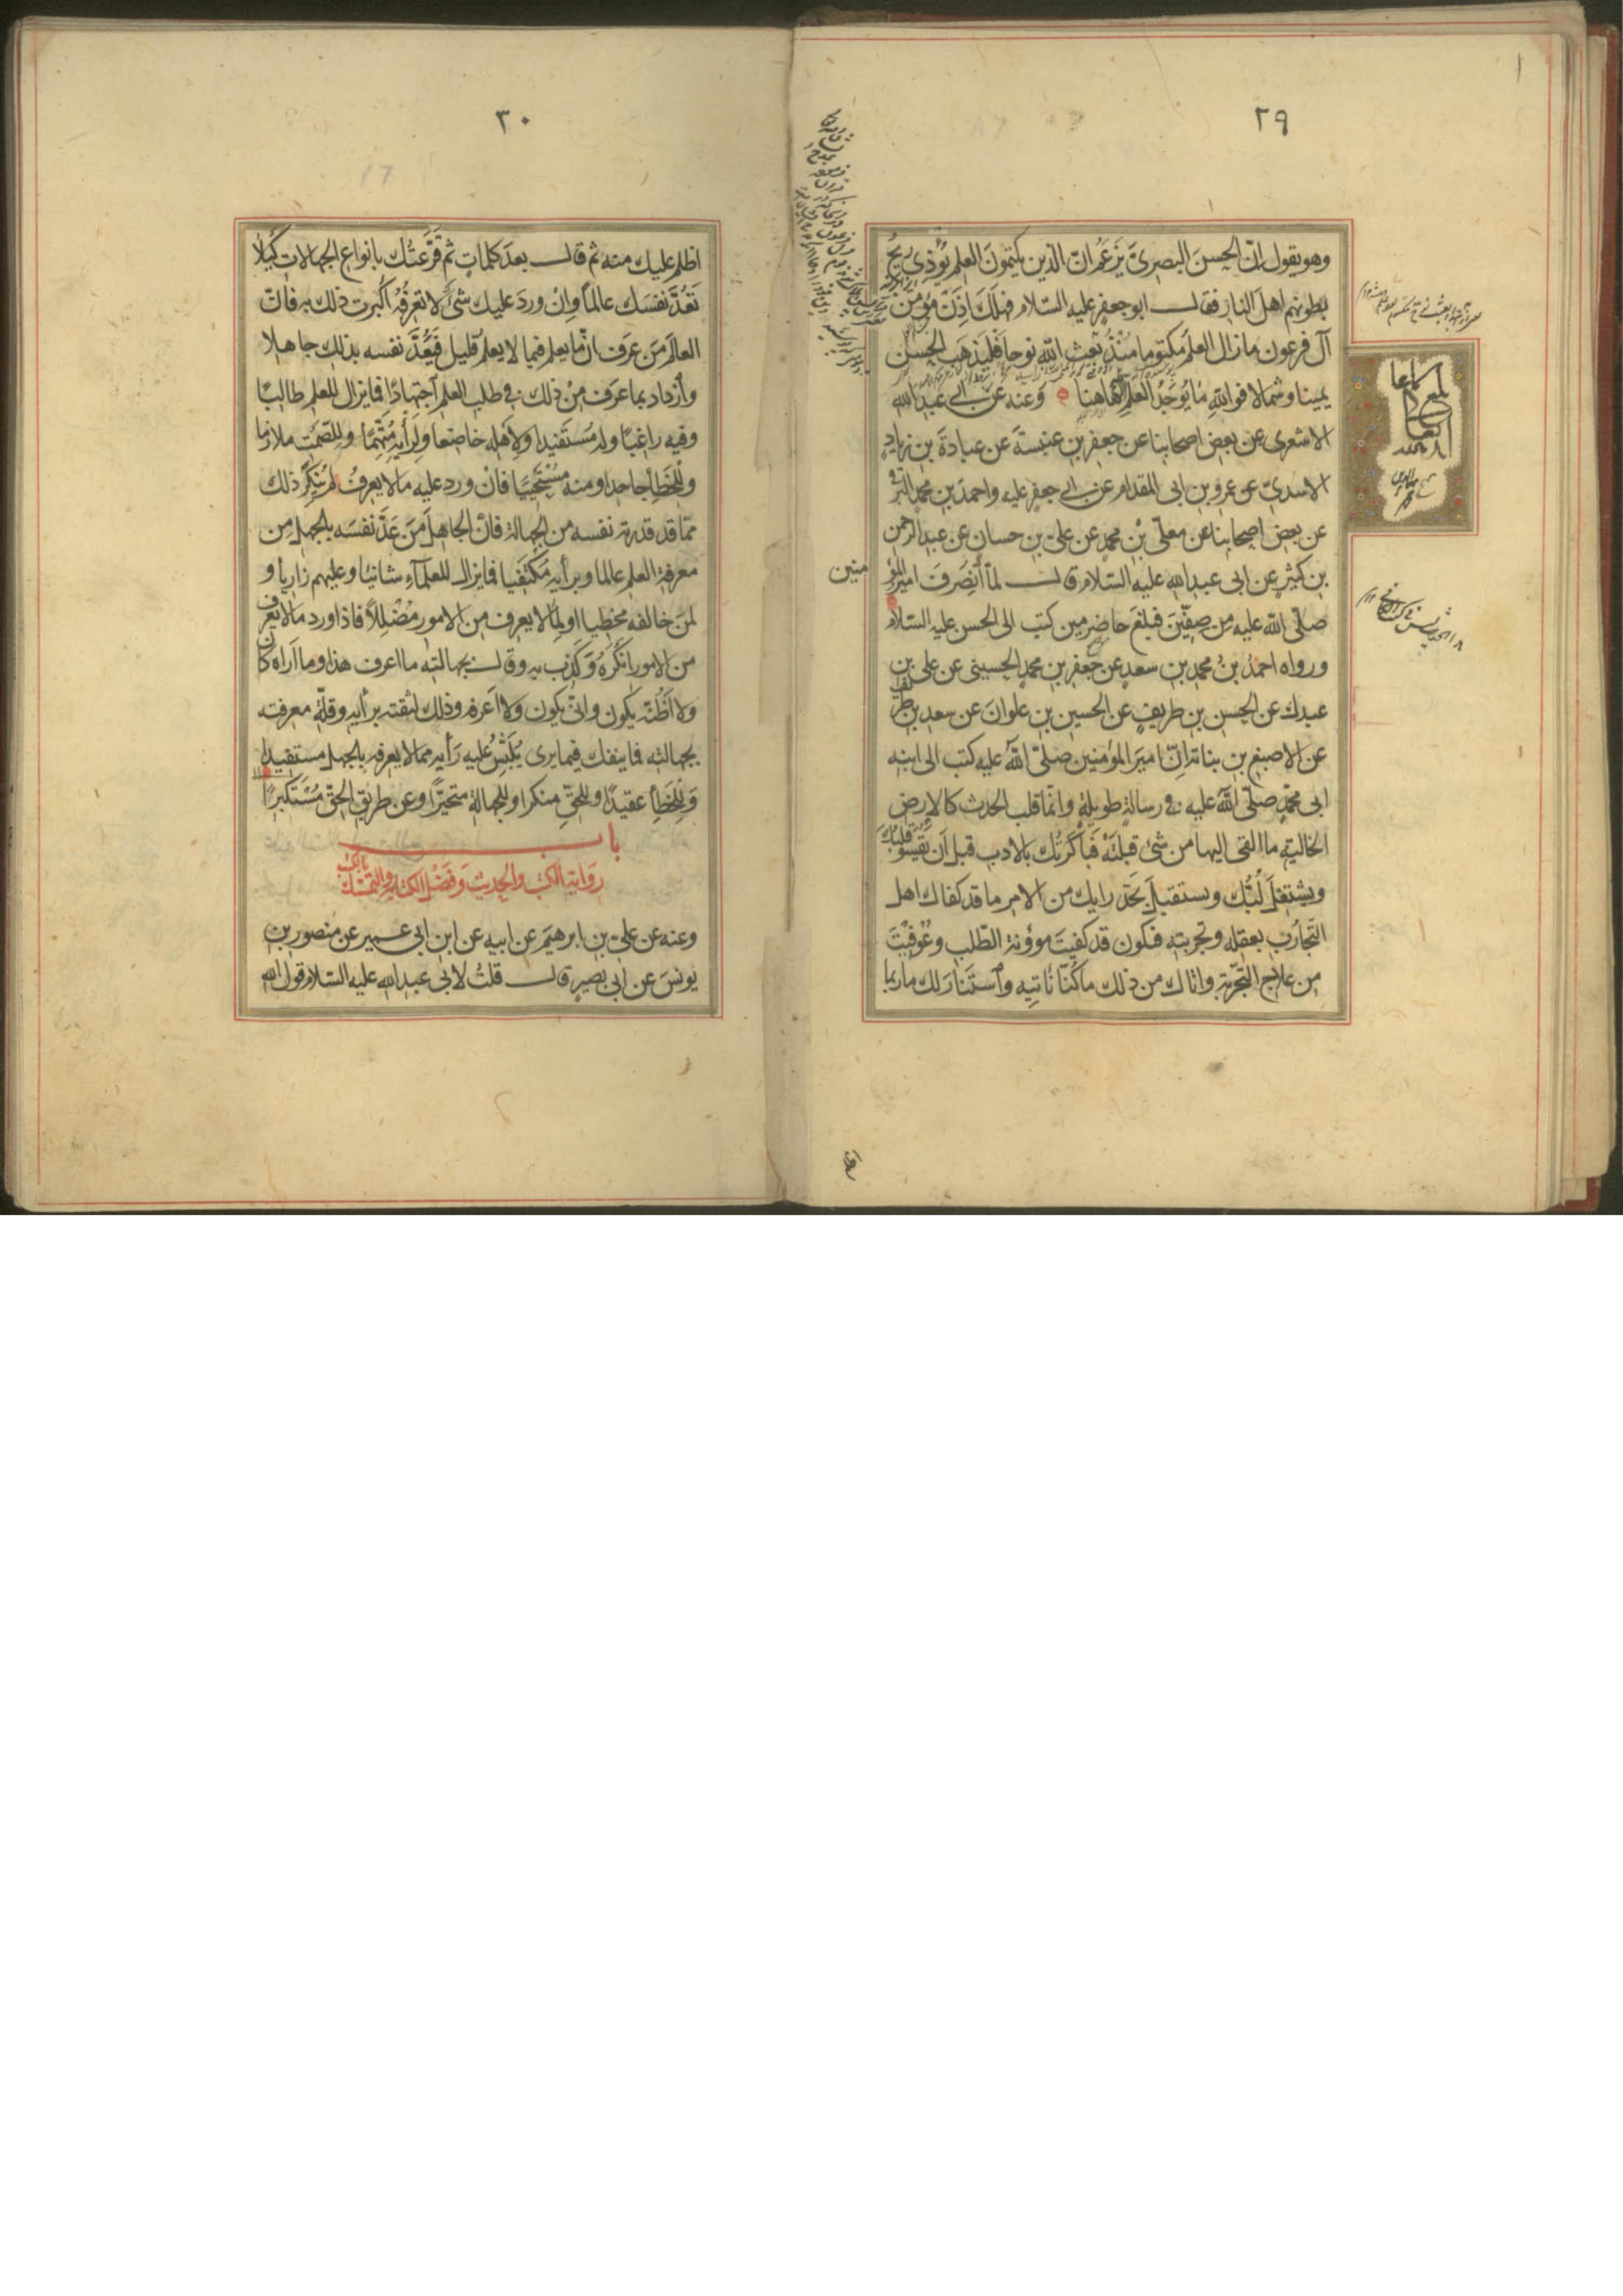 ٢٩
وهو يقول إنّ الحسنَ البصرىَّ يَزعَمُ انّ الذين يكتمونَ العلمَ يُؤذى ريحُ
بطونهم اهلَ النار فقال ابو جعفرٍ عليه السّلام فهلَكَ اِذَنْ مؤمنُ
آل فرعون ما زال العلمُ مكتوما مُنْذُ بعث اللّٰه نوحا فليذهَبِ الحسن
يمينا وشمالا فواللّٰهِ مَا يُوجَدُ العلمُ الّا هاهنا وعنه عن ابى عبد اللّٰه
الاشعرى عن بعض اصحابنا عن جعفر بن عنبسةَ عن عبادةَ بن زيادٍ
الاسدىّ عن عمرو بن ابى المقدام عن ابى جعفر عليه واحمدَ بن محمدٍ
عن بعض اصحابنا عن معلّى بْن محمدٍ عن علىّ بن حسانٍ عن عبد الرحمن
بن كثيرٍ عن ابى عبد اللّٰه عليه السّلام قال لمّا اَنصَرفَ امير المؤ
منين
صلّى اللّٰه عليه من صِفّينَ فبلغَ حاضِرِين كتب الى الحسن عليه السّلام
ورواه احمدُ بنُ محمدِ بن سعدٍ عن جعفر بن محمدٍ الحسينى عن على بن
عبدك عن الحسن بن طريفٍ عن الحسين بن علوانَ عن سعد بن طريف
عن الاصبغ بن نباتة انّ امير المؤمنين صلّى اللّٰه عليه كتب الى ابنه
ابى محمّدٍ صلّى اللّٰه عليه فى رسالةٍ طويلةٍ وانّما قلب الحدث كالارض
الخاليةِ ما القى اليها من شئ قبلَتْه فبَاكَرتُك بالادب قبل اَن يَقْسُوَ قلبك
ويشتغلَ لُبُّك وتستقبلَ بجدّ رايك من الامر ما قد كفاك اهل
التّجارُب بعقله وتجربته فتكون قد كفيتَ مؤونة الطّلب وعُوفِيْتَ
من علاج التّجربة واتاك من ذلك ما كُنّا نَأتيِهِ وٱستَنَارَ لك ما ربما
اظلم
٣٠
اظلم عليك منه ثم قال بعدَ كلماتٍ ثم قَرَّعتُك بانواع الجهالات لِكَيلا
تَعُدَّ نفسَك عالماً وانْ وردَ عليك شئٌ لا تَعْرِفُه اَكبرتَ ذلك به فانّ
العالمَ مَن عرَف انّ ما يعلم فيما لا يعلم قليل فَيَعُدُّ نفسه بذلك جاهلا
وٱزداد بما عرَف منْ ذلك فى طلب العلم ٱجتهادًا فما يزال للعلم طالبًا
وفيه راغبًا وله مُستَفيدا ولاهله خاضعا ولِرأيهِ مُتَّهِمًا وللصَّمْت ملازما
وللخَطأ جاحدا ومنه مُسْتَحْيِيًا فانْ ورد عليه ما لا يعرفُ لم يُنْكِرْ ذلك
ممّا قد قدرته نفسه من الجهالة فانّ الجاهل مَن عَدَّ نفسَه بالجهل من
معرفة العلم عالما وبرأيه مُكتَفيا فما يزال للعلمآء شانيًا وعليهم زاريا و
لمن خالفه مخطيا او لِما لا يعرف من الامور مُضْلِلاً فاذا ورد ما لا يعرف
من الامور انكَرَهُ وكَذب به وقال بجهالته ما اعرف هذا وما اَراه كان
ولا اظُنّه يكون وانّى يكون ولا اَعرفه وذلك لثقته برأيه وقلّة معرفته
بجهالته فما ينفكّ فيما يرى يَلتَبِسُ عليه رَأيه مما لا يعرفه بالجهل مستفيدا
وَلِلخَطأِ عقيدًا وللحقّ منكرا وللجهالة متحيّرًا وعن طريق الحقّ مُسْتَكبرًا
باب
رواية الكتب والحديث وفضل الكتابة والتمسّك بالكتب
وعنه عن علىّ بن ابرهيمَ عن ابيه عن ابن ابى عمير عن منصور بن
يونسَ عن ابى بصيرٍ قال قلتُ لابى عبد اللّٰه عليه السّلام قول اللّٰه